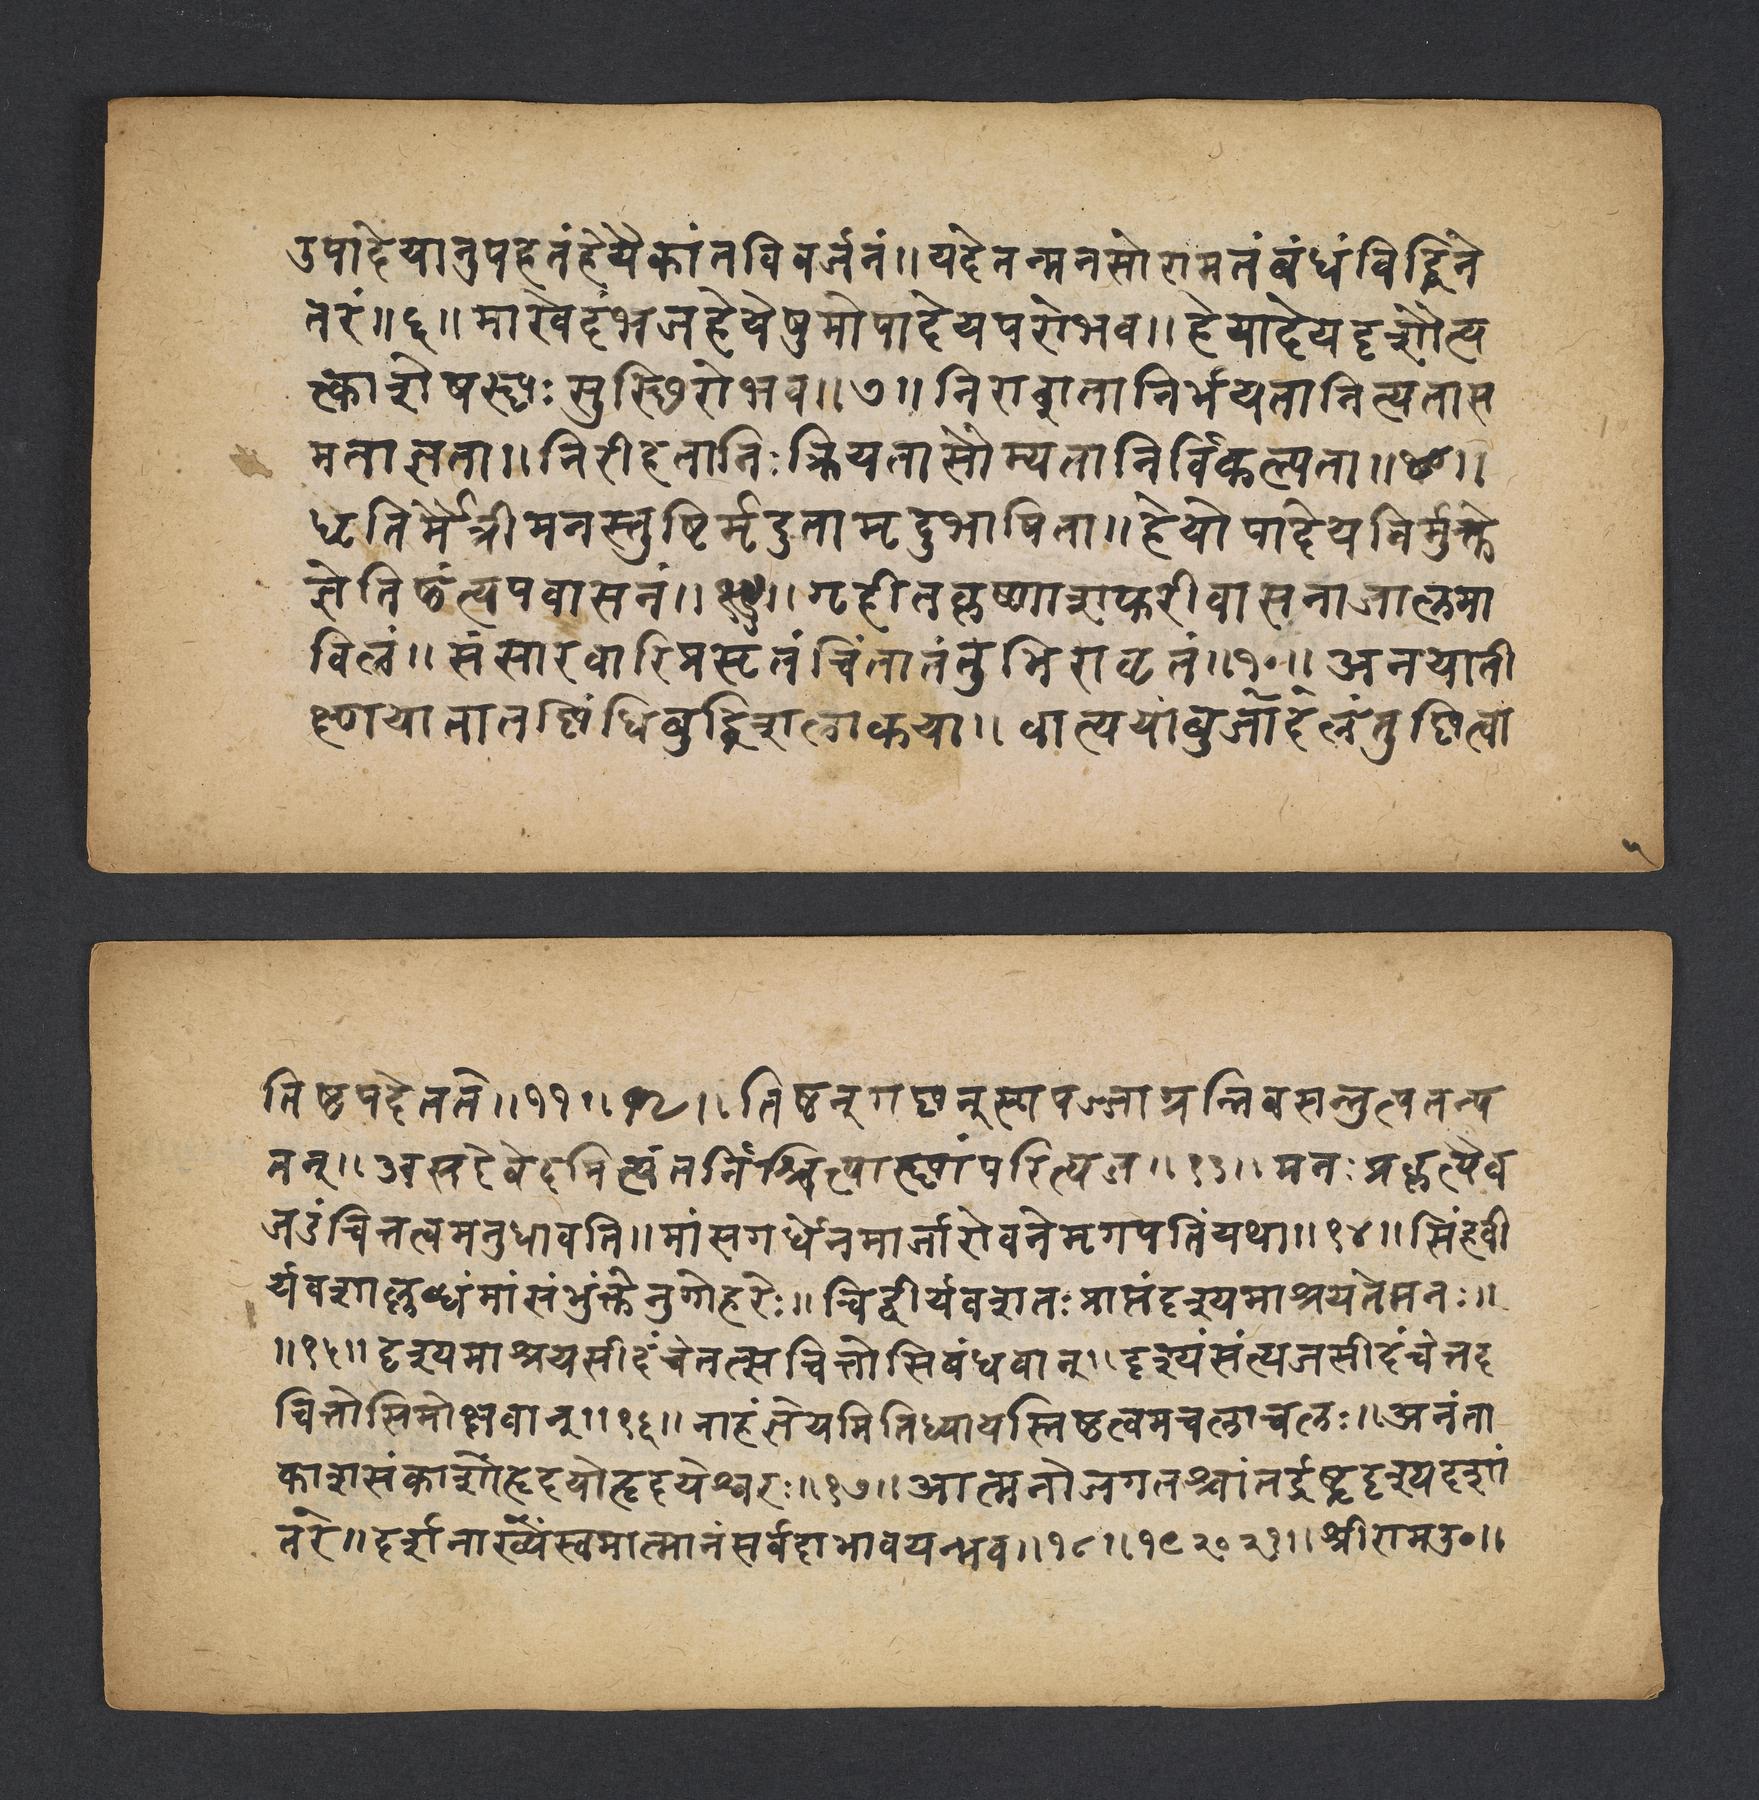 उपादेयानुपहेतंहेयैकांतविवर्जनं॥यदेतन्मनसोरामतंबंधंविद्धिने
तरं॥६॥माखेदंभजहेयेषुमोपादेयपरोभव॥हेयादेयदृशौत्य
त्काशेषस्छः सुस्छिरोभव॥७॥निराशतानिर्भयतानित्यतास
मताज्ञता॥निरीहतानिःक्रियतासौम्यतानिर्विकल्पता॥८॥
धृतिर्मैत्रीमनस्तुष्टिर्मृदुतामृदुभाषिता॥हेयोपादेयनिर्मुक्ते
ज्ञेतिष्ठंत्यपवासनं॥९॥गृहीततृष्णाशफरीवासनाजालमा
विलं॥संसारवारिप्रसृतंचिंतातंतुभिराततं॥१०॥अनयाती
क्ष्णयातातछिंधिबुद्धिशलाकया॥वात्ययांबुजांहेलंतुछित्वा
५
तिष्ठपदेतते॥११॥१२॥तिष्ठन्गछन्स्वपञ्जाग्रन्निवसन्नुत्पतन्प
तन्॥असदेवेदमित्यंतर्निश्चित्यास्छांपरित्यज॥१३॥मनःप्रकृत्यैव
जडंचित्तत्वमनुधावति॥मांसगर्धेनमार्जारोवनेमृगपतिंयथा॥१४॥सिंहवी
र्यवशाल्लब्धंमांसंभुंक्तेनुगोहरेः॥चिद्वीर्यवशतः प्राप्तंदृश्यमाश्रयतेमनः॥
॥१५॥दृश्यमाश्रयसीदंचेतत्सचित्तोसिबंधवान्॥दृश्यंसंत्यजसीदंचेत्तद
चित्तोसिमोक्षवान्॥१६॥नाहंनेयमितिध्यायस्तिष्ठत्वमचलाचलः॥अनंता
काशसंकाशोहृदयोहृदयेश्वरः॥१७॥आत्मनोजगतश्चांतर्द्रष्टृदृश्यदृशां
तरे॥दर्शनाख्यंस्वमात्मानंसर्वदाभावयन्भव॥१८॥१९२०२१॥श्रीरामउ०॥